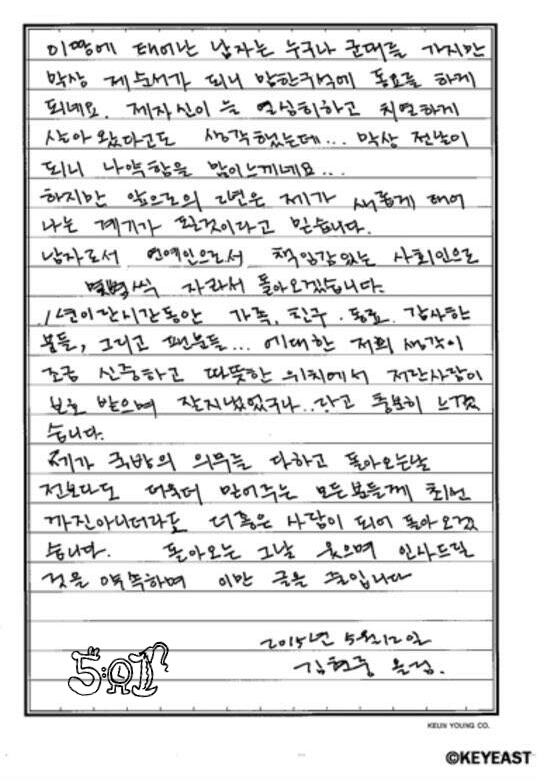 이땅에 태어난 남자는 누구나 군대를 가지만
막상 제순서가 되니 암한구석에 동요를 하게
되네요. 제자신이 늘 열심히하고 치열하게
살아왔다고도 생각했는데... 막상 전날이
되니 나약함을 많이느끼네요...
하지만 앞으로의 2년은 제가 새롭게 태어
나는 계기가 될것이라고 믿습니다.
남자로서 연예인으로서 책임감있는 사회인으로
씩 자라서 돌아오겠습니다.
년이란시간동안 가족, 친구, 동료, 감사한
분들, 그리고 팬분들... 에대한 저희 생각이
조금 신중하고 따뜻한 위치에서 저란사람이
보호 받으며 잘지냈었구나..라고 충분히 느꼈
습니다.
제가 국방의 의무를 다하고 돌아오는날
전보다도 더욱더 믿어주는 모든분들께
까진아니더라도 더좋은 사람이 되어 돌아오겠
습니다. 돌아오는 그날 웃으며 인사드릴
것을 약속하며 이만 글을 줄입니다
2015년 5월12일
김현중 올림.
5:01
KEUN YOUNG CO.
©KEYEAST